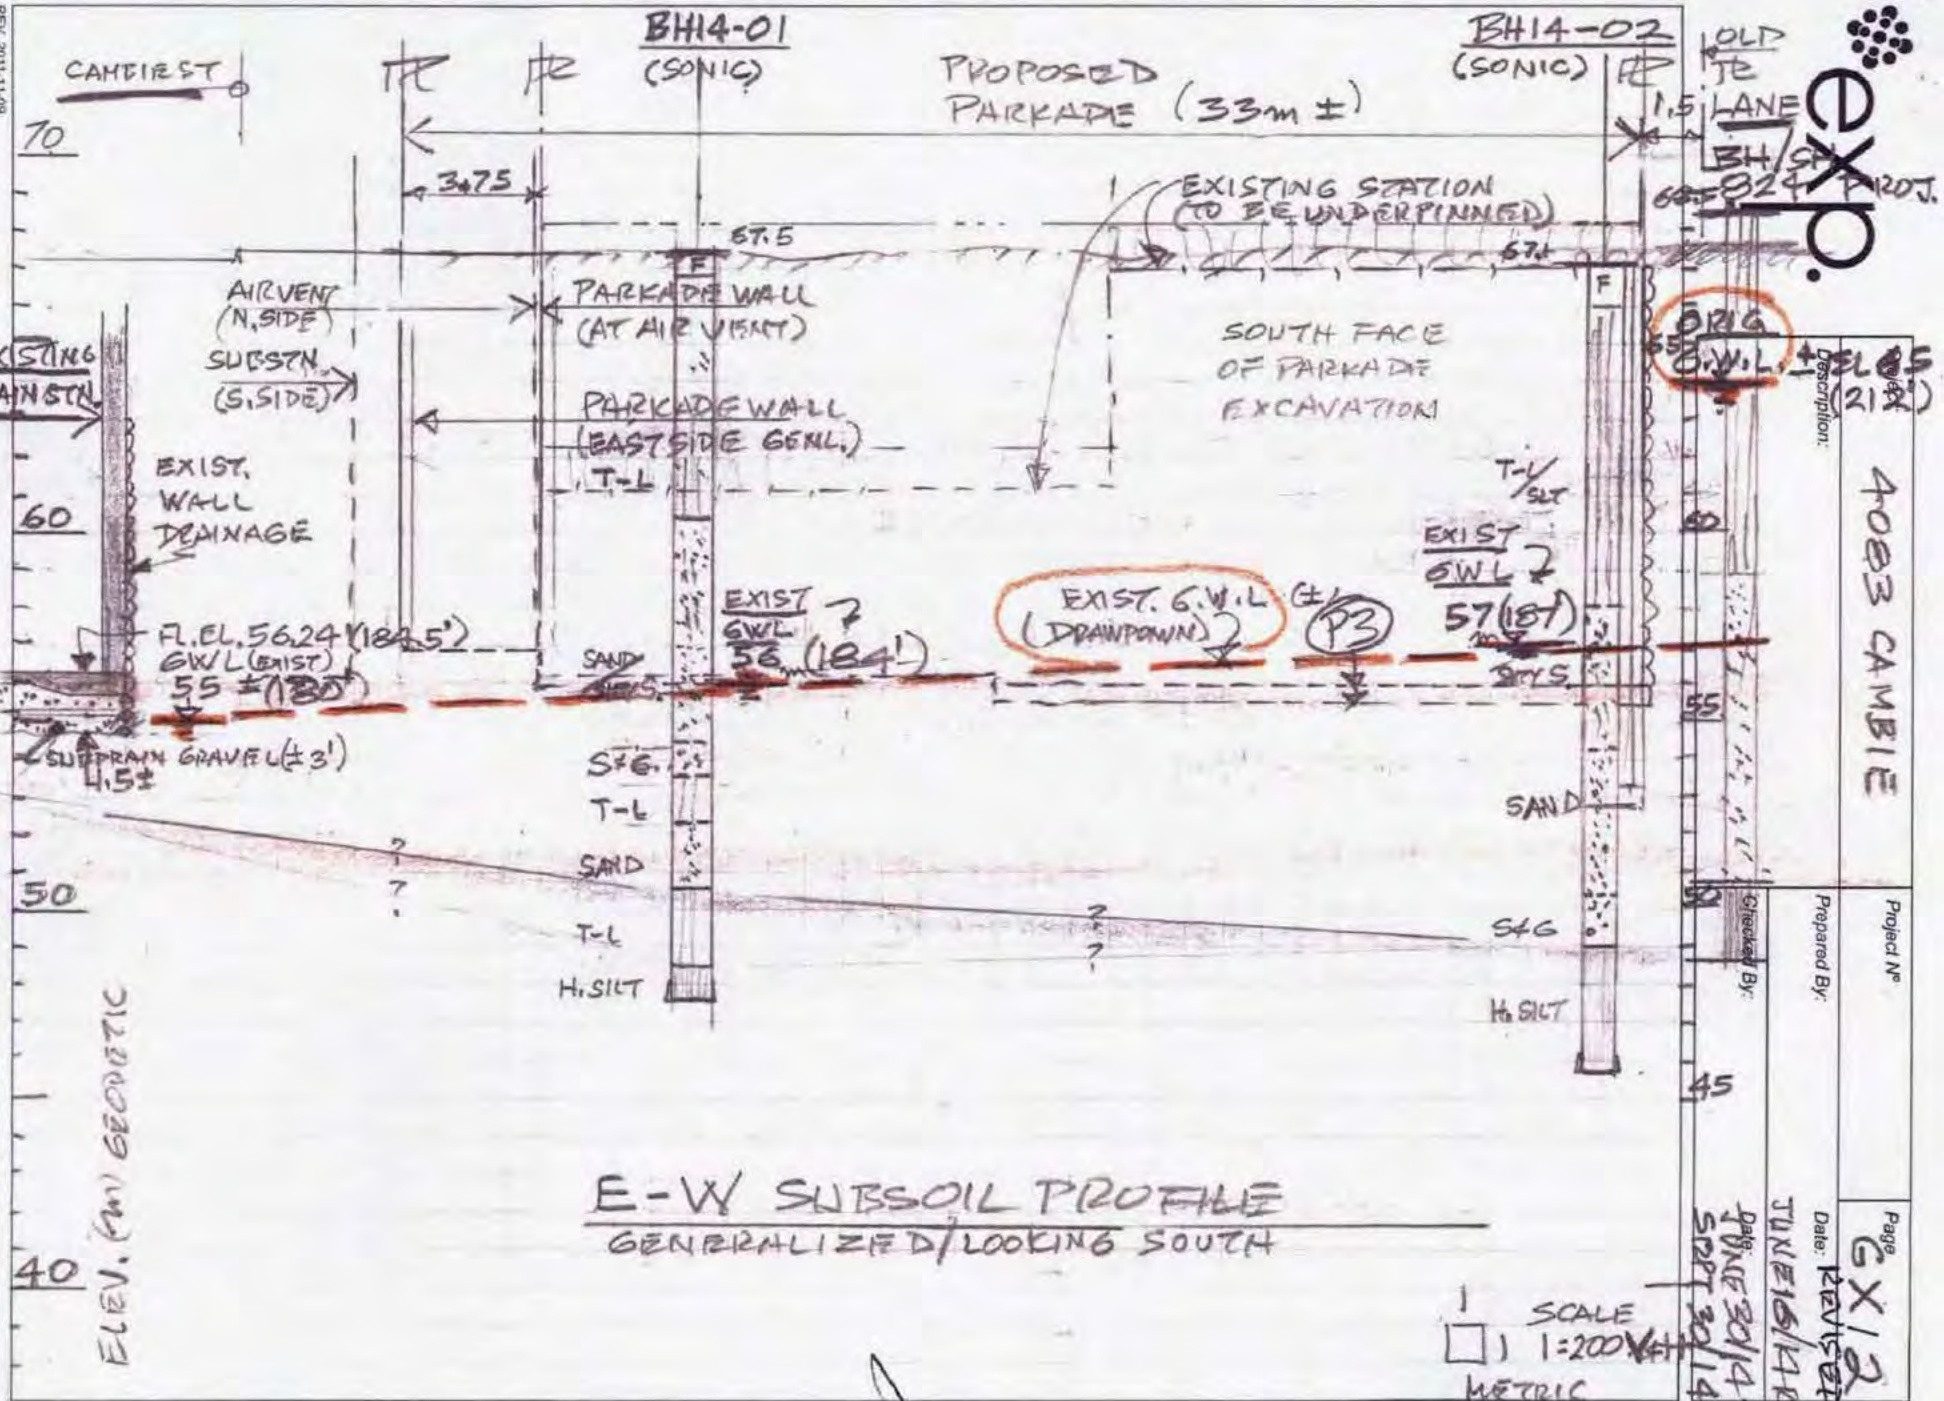 CAMBIE ST
BH14-01
(SONIC)
PROPOSED
PARKADE (33m ±)
BH14-02
(SONIC)
OLD
LANE
1.5
exp.
70
3.75
67.5
EXISTING STATION
(TO BE UNDERPINNED)
67.1
F
F
AIRVENT
(N. SIDE)
PARKADE WALL
(AT AIR VENT)
SUBSTN.
(S. SIDE)
PARKADE WALL
(EASTSIDE GENL.)
T-L
SOUTH FACE
OF PARKADE
EXCAVATION
ORIG
G.W.L. ± EL 65
(212')
EXIST.
WALL
DRAINAGE
60
T-L/
SLT
60
EXIST
GWL ?
57 (187')
EXIST
GWL ?
56 m (184')
EXIST. G.W.L (±)
(DRAWDOWN)
P3
FL. EL. 56.24 (184.5')
GWL (EXIST)
55 ± (180')
SAND
SLTY S.
55
SUBDRAIN GRAVEL (± 3')
4.5±
S&G.
T-L
SAND
SAND
?
?
?
?
50
50
T-L
H. SILT
S&G
H. SILT
45
40
ELEV. (m) GEODETIC
E-W SUBSOIL PROFILE
GENERALIZED/LOOKING SOUTH
SCALE
1:200 V&H
METRIC
Description:
4083 CAMBIE
Project Nº
Prepared By:
Checked By:
Page
GX/2
Date: REVISED
JUNE 16/14
Date:
JUNE 30/14
SEPT 30/14